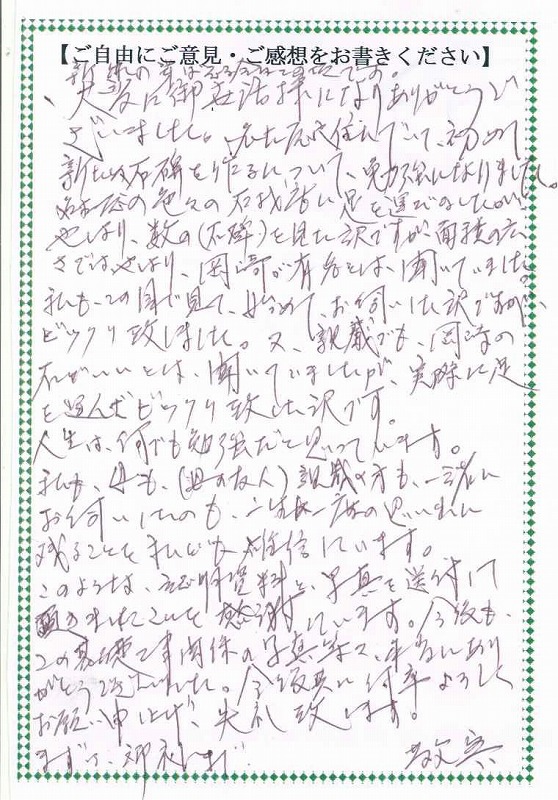 【ご自由にご意見・ご感想をお書きください】
大変に御世話様になりありがとうご
ざいました。名古屋に住んでいて、初めて
新たな石碑を作るについて、勉強になりました。
名古屋の色々の石材店に足を運びましたが
やはり、数の(石碑)を見た訳ですが、面積の広
さではやはり、岡崎が有名とは、聞いていました。
私もこの目で見て、始めて、お伺いした訳ですが、
ビックリ致しました。又、親戚でも、岡崎の
石がいいとは、聞いていましたが、実際に足
を運んだビックリ致した訳です。
人生は、何でも勉強だと思っています。
私も、母も、(母の友人)親戚の方も、一緒に
お伺いしたのも、一生に一度の思い出に
残ることを私ども確信しています。
このような、資料と、写真を送付して
頂きましたことを感謝しています。今後も、
この基礎工事関係の写真等、本当にあり
がとうございました。今後共に何卒よろしく
お願い申上げ、失礼致します。
まずは、御礼まで